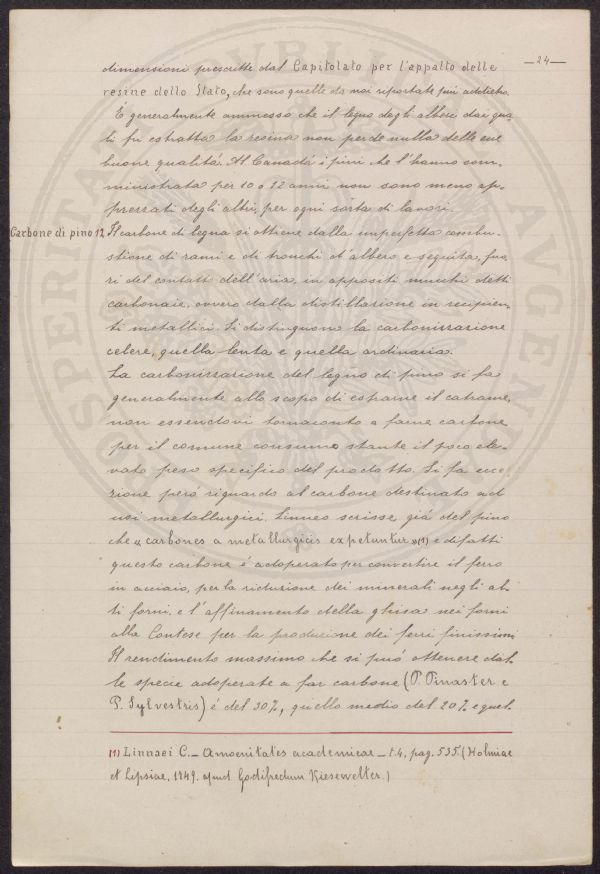 —24—
dimensioni prescritte dal Capitolato per l'appalto delle
resine dello Stato, che sono quelle da noi riportate più addietro.
È generalmente ammesso che il legno degli alberi dai qua-
li fu estratta la resina non perde nulla delle sue
buone qualità. Al Canadà i pini che l'hanno som-
ministrata per 10 o 12 anni non sono meno ap-
prezzati degli altri, per ogni sorta di lavori.
Carbone di pino 12. Il carbone di legna si ottiene dalla imperfetta combu-
stione di rami e di tronchi d'albero eseguita, fuo-
ri del contatto dell'aria, in appositi mucchi detti
carbonaie, ovvero dalla distillazione in recipien-
ti metallici. Si distinguono la carbonizzazione
celere, quella lenta e quella ordinaria.
La carbonizzazione del legno di pino si fa
generalmente allo scopo di esparne il catrame,
non essendovi tornaconto a farne carbone
per il comune consumo stante il poco ele-
vato peso specifico del prodotto. Si fa ecce-
zione però riguardo al carbone destinato ad
usi metallurgici. Linneo scrisse già del pino
che « carbones a metallurgicis expetuntur »(1) e difatti
questo carbone é adoperato per convertire il ferro
in acciaio, per la riduzione dei minerali negli al-
ti forni, e l'affinamento della ghisa nei forni
alla Contese per la produzione dei ferri finissimi
Il rendimento massimo che si può ottenere dal-
le specie adoperate a far carbone (P. Pinaster e
P. Sylvestris) é del 30%, quello medio del 20% e quel-
(1) Linnaei C. — Amoenitates academicae — t. 4, pag. 535. (Holmiae
et Lipsiae, 1749. apud Godifredum Kiesewetter.)